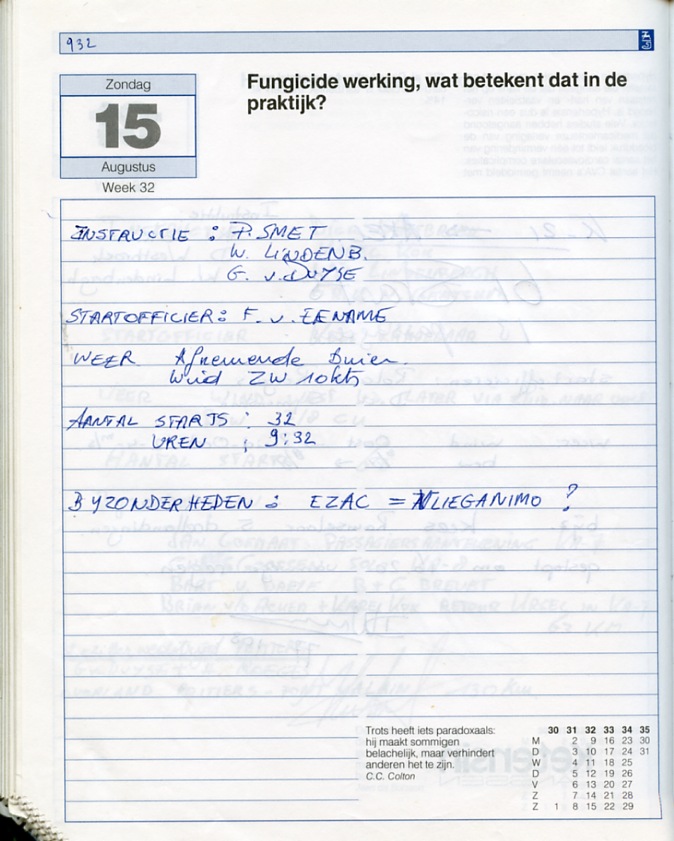 932
Zondag
15
Augustus
Week 32
Fungicide werking, wat betekent dat in de
praktijk?
INSTRUCTIE : P. SMET
W. LINDENB.
G. v. DUYSE
STARTOFFICIER : F. v. EENAME
WEER Afnemende Buien.
Wind ZW 10kts
AANTAL STARTS : 32
UREN : 9:32
BYZONDERHEDEN : EZAC = VLIEGANIMO ?
Trots heeft iets paradoxaals:
hij maakt sommigen
belachelijk, maar verhindert
anderen het te zijn.
C.C. Colton
30 31 32 33 34 35
M 2 9 16 23 30
D 3 10 17 24 31
W 4 11 18 25
D 5 12 19 26
V 6 13 20 27
Z 7 14 21 28
Z 1 8 15 22 29